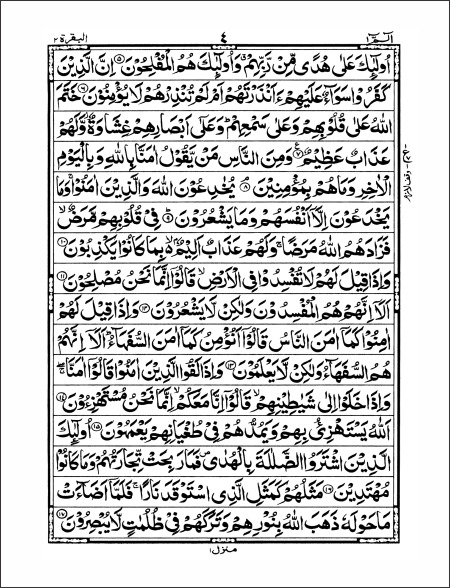 البقرة ٢ ٤ الٓمّٓ ١
اُولٰٓئِكَ عَلٰى هُدًى مِّنْ رَّبِّهِمْ ۗ وَاُولٰٓئِكَ هُمُ الْمُفْلِحُوْنَ ۝٥ اِنَّ الَّذِيْنَ
كَفَرُوْا سَوَآءٌ عَلَيْهِمْ ءَاَنْذَرْتَهُمْ اَمْ لَمْ تُنْذِرْهُمْ لَا يُؤْمِنُوْنَ ۝٦ خَتَمَ
اللّٰهُ عَلٰى قُلُوْبِهِمْ وَعَلٰى سَمْعِهِمْ ؕ وَعَلٰٓى اَبْصَارِهِمْ غِشَاوَةٌ ؗ وَّلَهُمْ
عَذَابٌ عَظِيْمٌ ۝٧ وَمِنَ النَّاسِ مَنْ يَّقُوْلُ اٰمَنَّا بِاللّٰهِ وَبِالْيَوْمِ
الْاٰخِرِ وَمَا هُمْ بِمُؤْمِنِيْنَ ۝٨ يُخٰدِعُوْنَ اللّٰهَ وَالَّذِيْنَ اٰمَنُوْا ۚ وَمَا
يَخْدَعُوْنَ اِلَّآ اَنْفُسَهُمْ وَمَا يَشْعُرُوْنَ ۝٩ فِيْ قُلُوْبِهِمْ مَّرَضٌ ۙ
فَزَادَهُمُ اللّٰهُ مَرَضًا ۚ وَلَهُمْ عَذَابٌ اَلِيْمٌۢ ۙ۬ بِمَا كَانُوْا يَكْذِبُوْنَ ۝١٠
وَاِذَا قِيْلَ لَهُمْ لَا تُفْسِدُوْا فِي الْاَرْضِ ۙ قَالُوْٓا اِنَّمَا نَحْنُ مُصْلِحُوْنَ ۝١١
اَلَآ اِنَّهُمْ هُمُ الْمُفْسِدُوْنَ وَلٰكِنْ لَّا يَشْعُرُوْنَ ۝١٢ وَاِذَا قِيْلَ لَهُمْ
اٰمِنُوْا كَمَآ اٰمَنَ النَّاسُ قَالُوْٓا اَنُؤْمِنُ كَمَآ اٰمَنَ السُّفَهَآءُ ؕ اَلَآ اِنَّهُمْ
هُمُ السُّفَهَآءُ وَلٰكِنْ لَّا يَعْلَمُوْنَ ۝١٣ وَاِذَا لَقُوا الَّذِيْنَ اٰمَنُوْا قَالُوْٓا اٰمَنَّا ۖۚ
وَاِذَا خَلَوْا اِلٰى شَيٰطِيْنِهِمْ ۙ قَالُوْٓا اِنَّا مَعَكُمْ ۙ اِنَّمَا نَحْنُ مُسْتَهْزِءُوْنَ ۝١٤
اَللّٰهُ يَسْتَهْزِئُ بِهِمْ وَيَمُدُّهُمْ فِيْ طُغْيَانِهِمْ يَعْمَهُوْنَ ۝١٥ اُولٰٓئِكَ
الَّذِيْنَ اشْتَرَوُا الضَّلٰلَةَ بِالْهُدٰى ۪ فَمَا رَبِحَتْ تِّجَارَتُهُمْ وَمَا كَانُوْا
مُهْتَدِيْنَ ۝١٦ مَثَلُهُمْ كَمَثَلِ الَّذِي اسْتَوْقَدَ نَارًا ۚ فَلَمَّآ اَضَآءَتْ
مَا حَوْلَهٗ ذَهَبَ اللّٰهُ بِنُوْرِهِمْ وَتَرَكَهُمْ فِيْ ظُلُمٰتٍ لَّا يُبْصِرُوْنَ ۝١٧
منزل ١